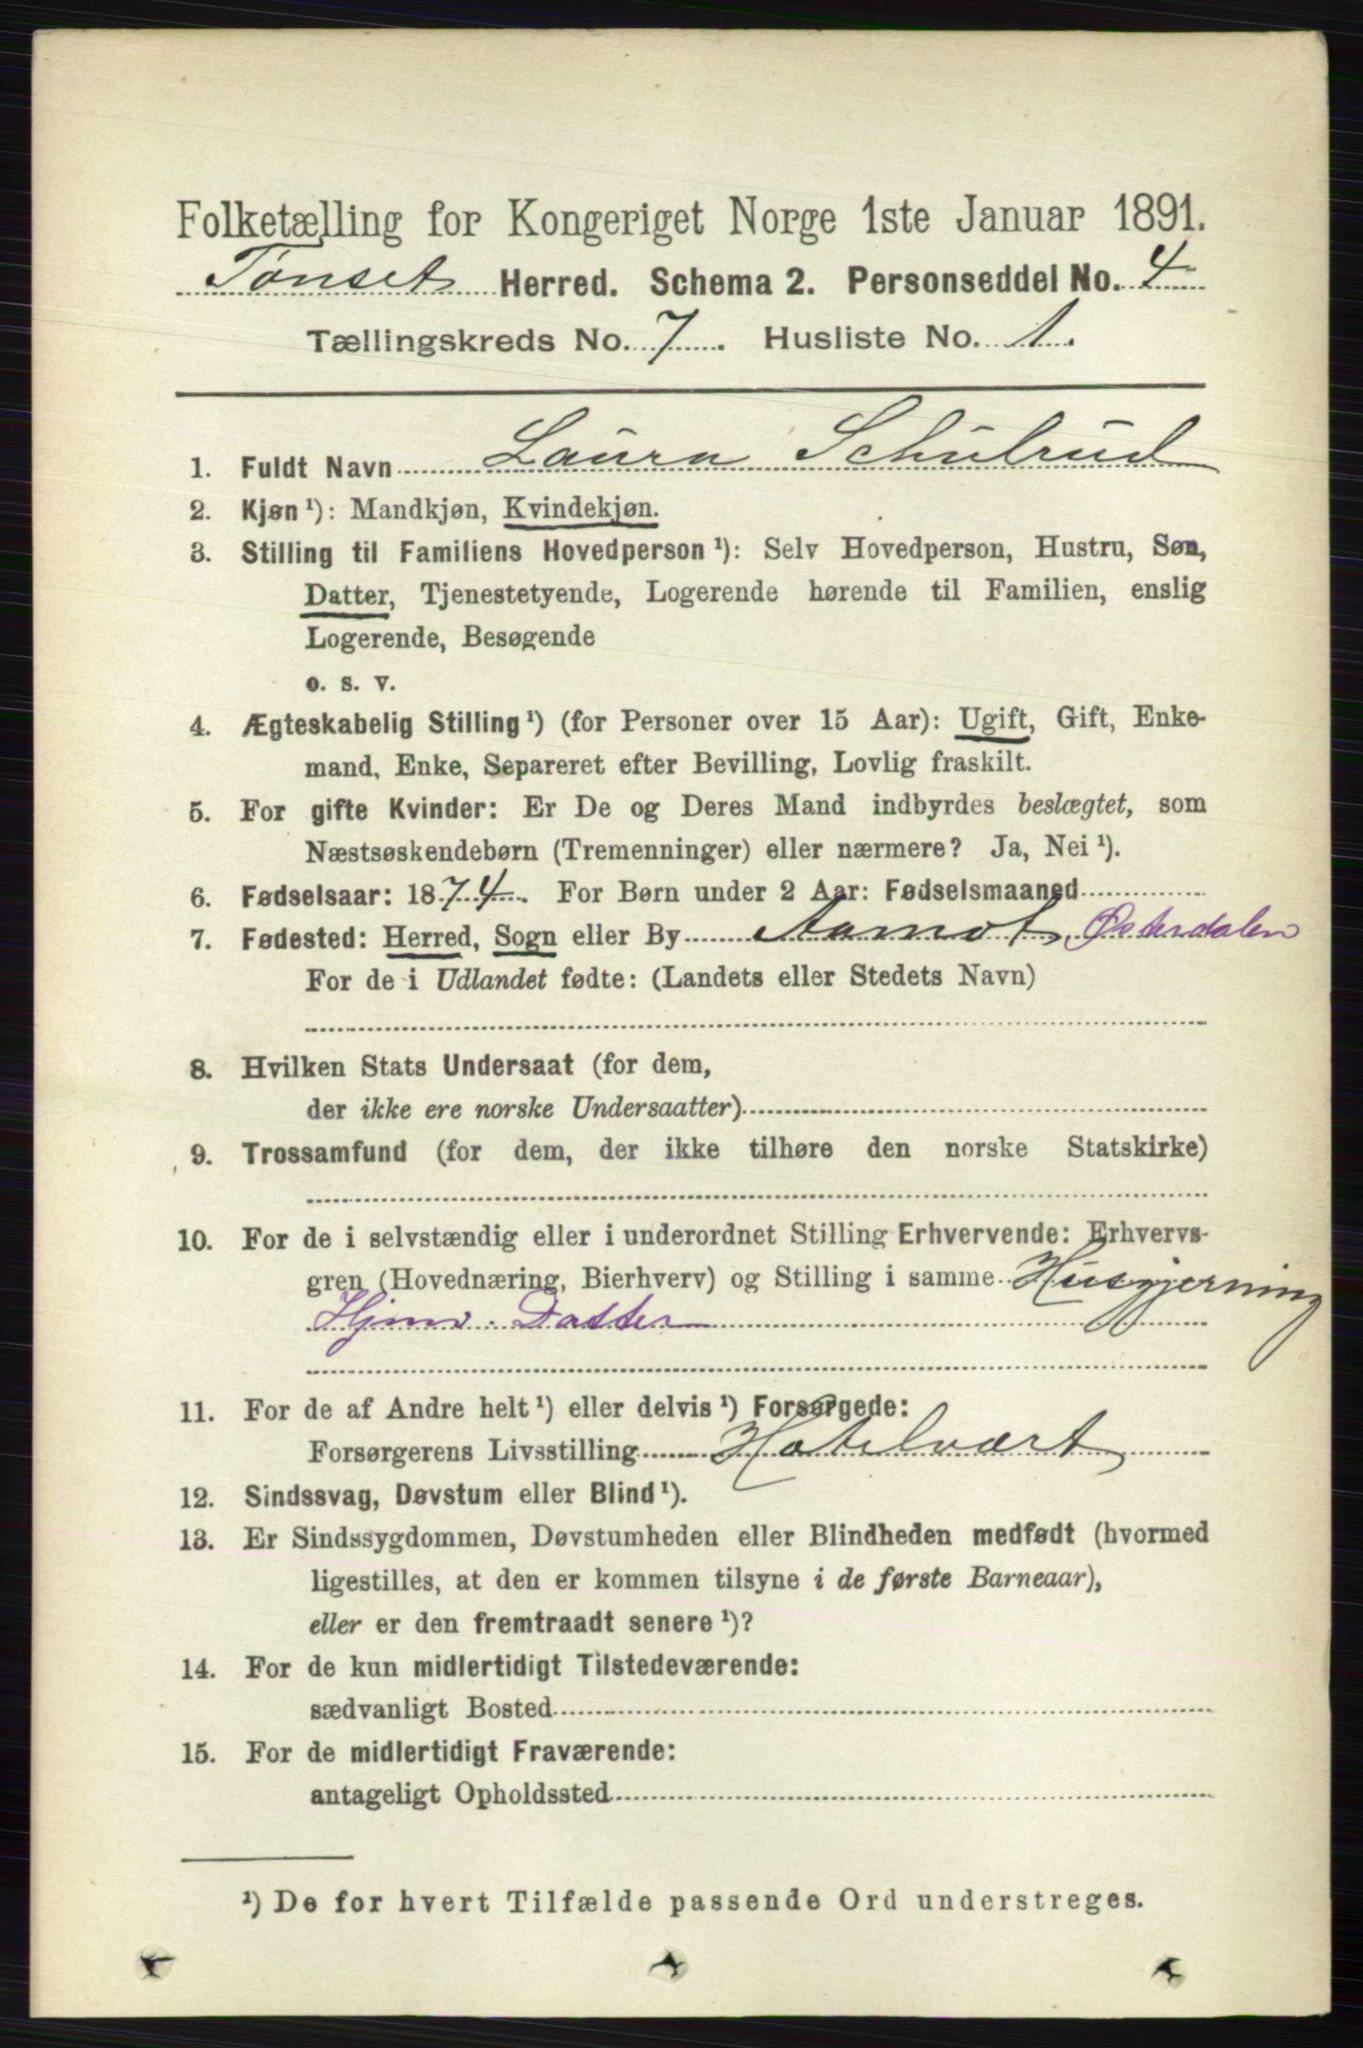 Folketælling for Kongeriget Norge 1ste Januar 1891.
Tønset Herred. Schema 2. Personseddel No. 4
Tællingskreds No. 7. Husliste No. 1.
1. Fuldt Navn Laura Schulrud
2. Kjøn ¹): Mandkjøn, Kvindekjøn.
3. Stilling til Familiens Hovedperson ¹): Selv Hovedperson, Hustru, Søn,
Datter, Tjenestetyende, Logerende hørende til Familien, enslig
Logerende, Besøgende
o. s. v.
4. Ægteskabelig Stilling ¹) (for Personer over 15 Aar): Ugift, Gift, Enke-
mand, Enke, Separeret efter Bevilling, Lovlig fraskilt.
5. For gifte Kvinder: Er De og Deres Mand indbyrdes beslægtet, som
Næstsøskendebørn (Tremenninger) eller nærmere? Ja, Nei ¹).
6. Fødselsaar: 1874. For Børn under 2 Aar: Fødselsmaaned
7. Fødested: Herred, Sogn eller By Aamot Østerdalen
For de i Udlandet fødte: (Landets eller Stedets Navn)
8. Hvilken Stats Undersaat (for dem,
der ikke ere norske Undersaatter)
9. Trossamfund (for dem, der ikke tilhøre den norske Statskirke)
10. For de i selvstændig eller i underordnet Stilling Erhvervende: Erhvervs-
gren (Hovednæring, Bierhverv) og Stilling i samme Husgjerning
Hjmv. Datter
11. For de af Andre helt ¹) eller delvis ¹) Forsørgede:
Forsørgerens Livsstilling Hotelvært
12. Sindssvag, Døvstum eller Blind ¹).
13. Er Sindssygdommen, Døvstumheden eller Blindheden medfødt (hvormed
ligestilles, at den er kommen tilsyne i de første Barneaar),
eller er den fremtraadt senere ¹)?
14. For de kun midlertidigt Tilstedeværende:
sædvanligt Bosted
15. For de midlertidigt Fraværende:
antageligt Opholdssted
¹) De for hvert Tilfælde passende Ord understreges.